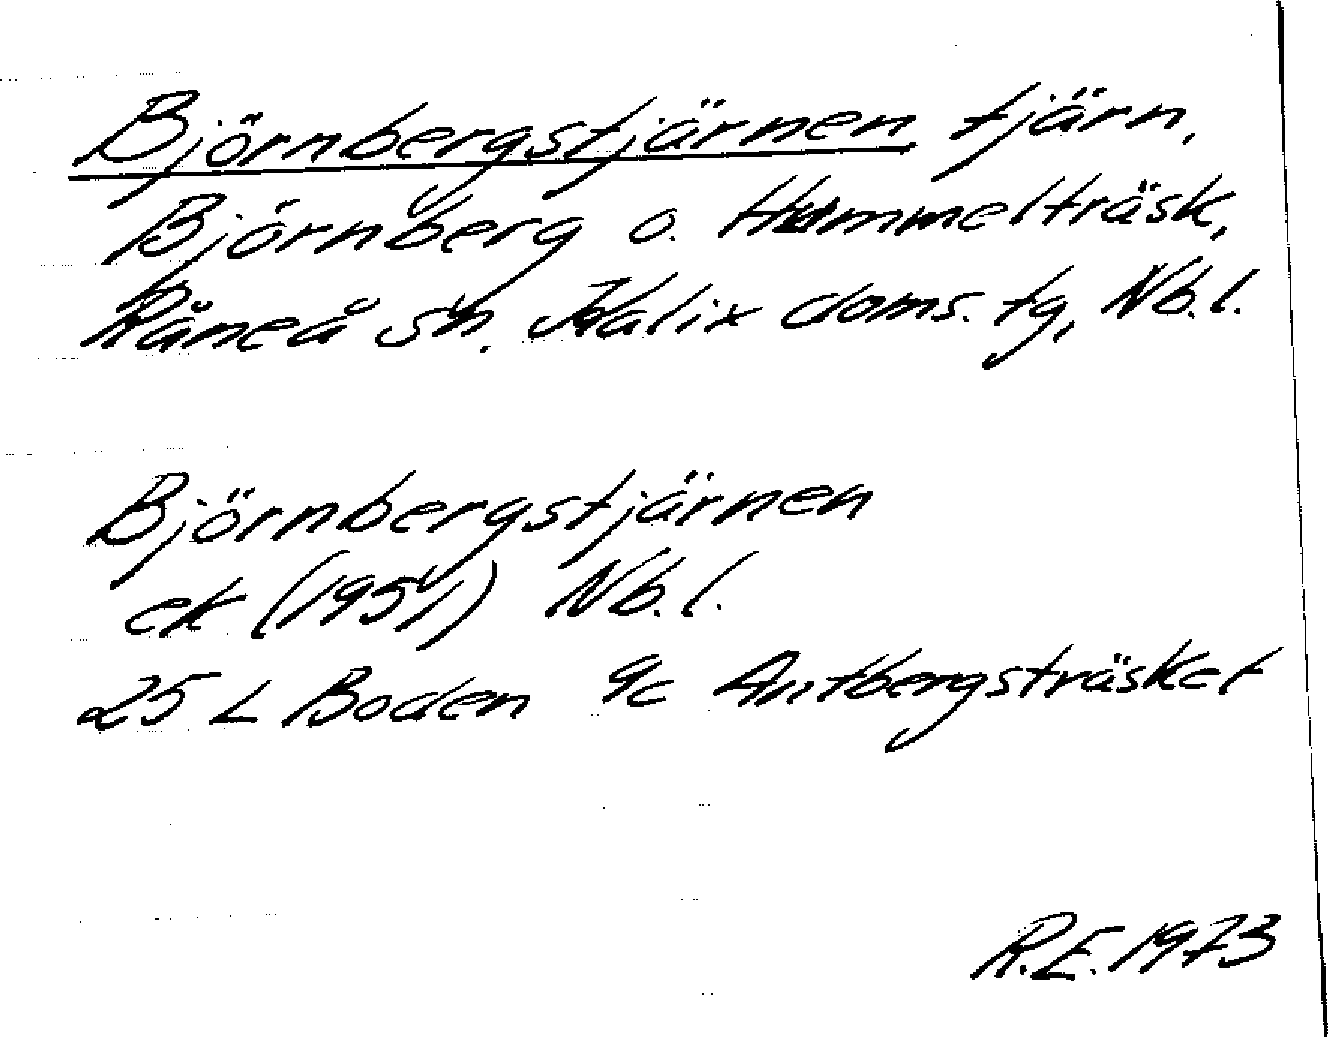 Björnbergstjärnen tjärn,
Björnberg o. Hummelträsk,
Råneå sn. Kalix doms. tg, Nb.l.
Björnbergstjärnen
ek (1951) Nb.l.
25 L Boden 9c Antbergsträsket
R.E. 1973